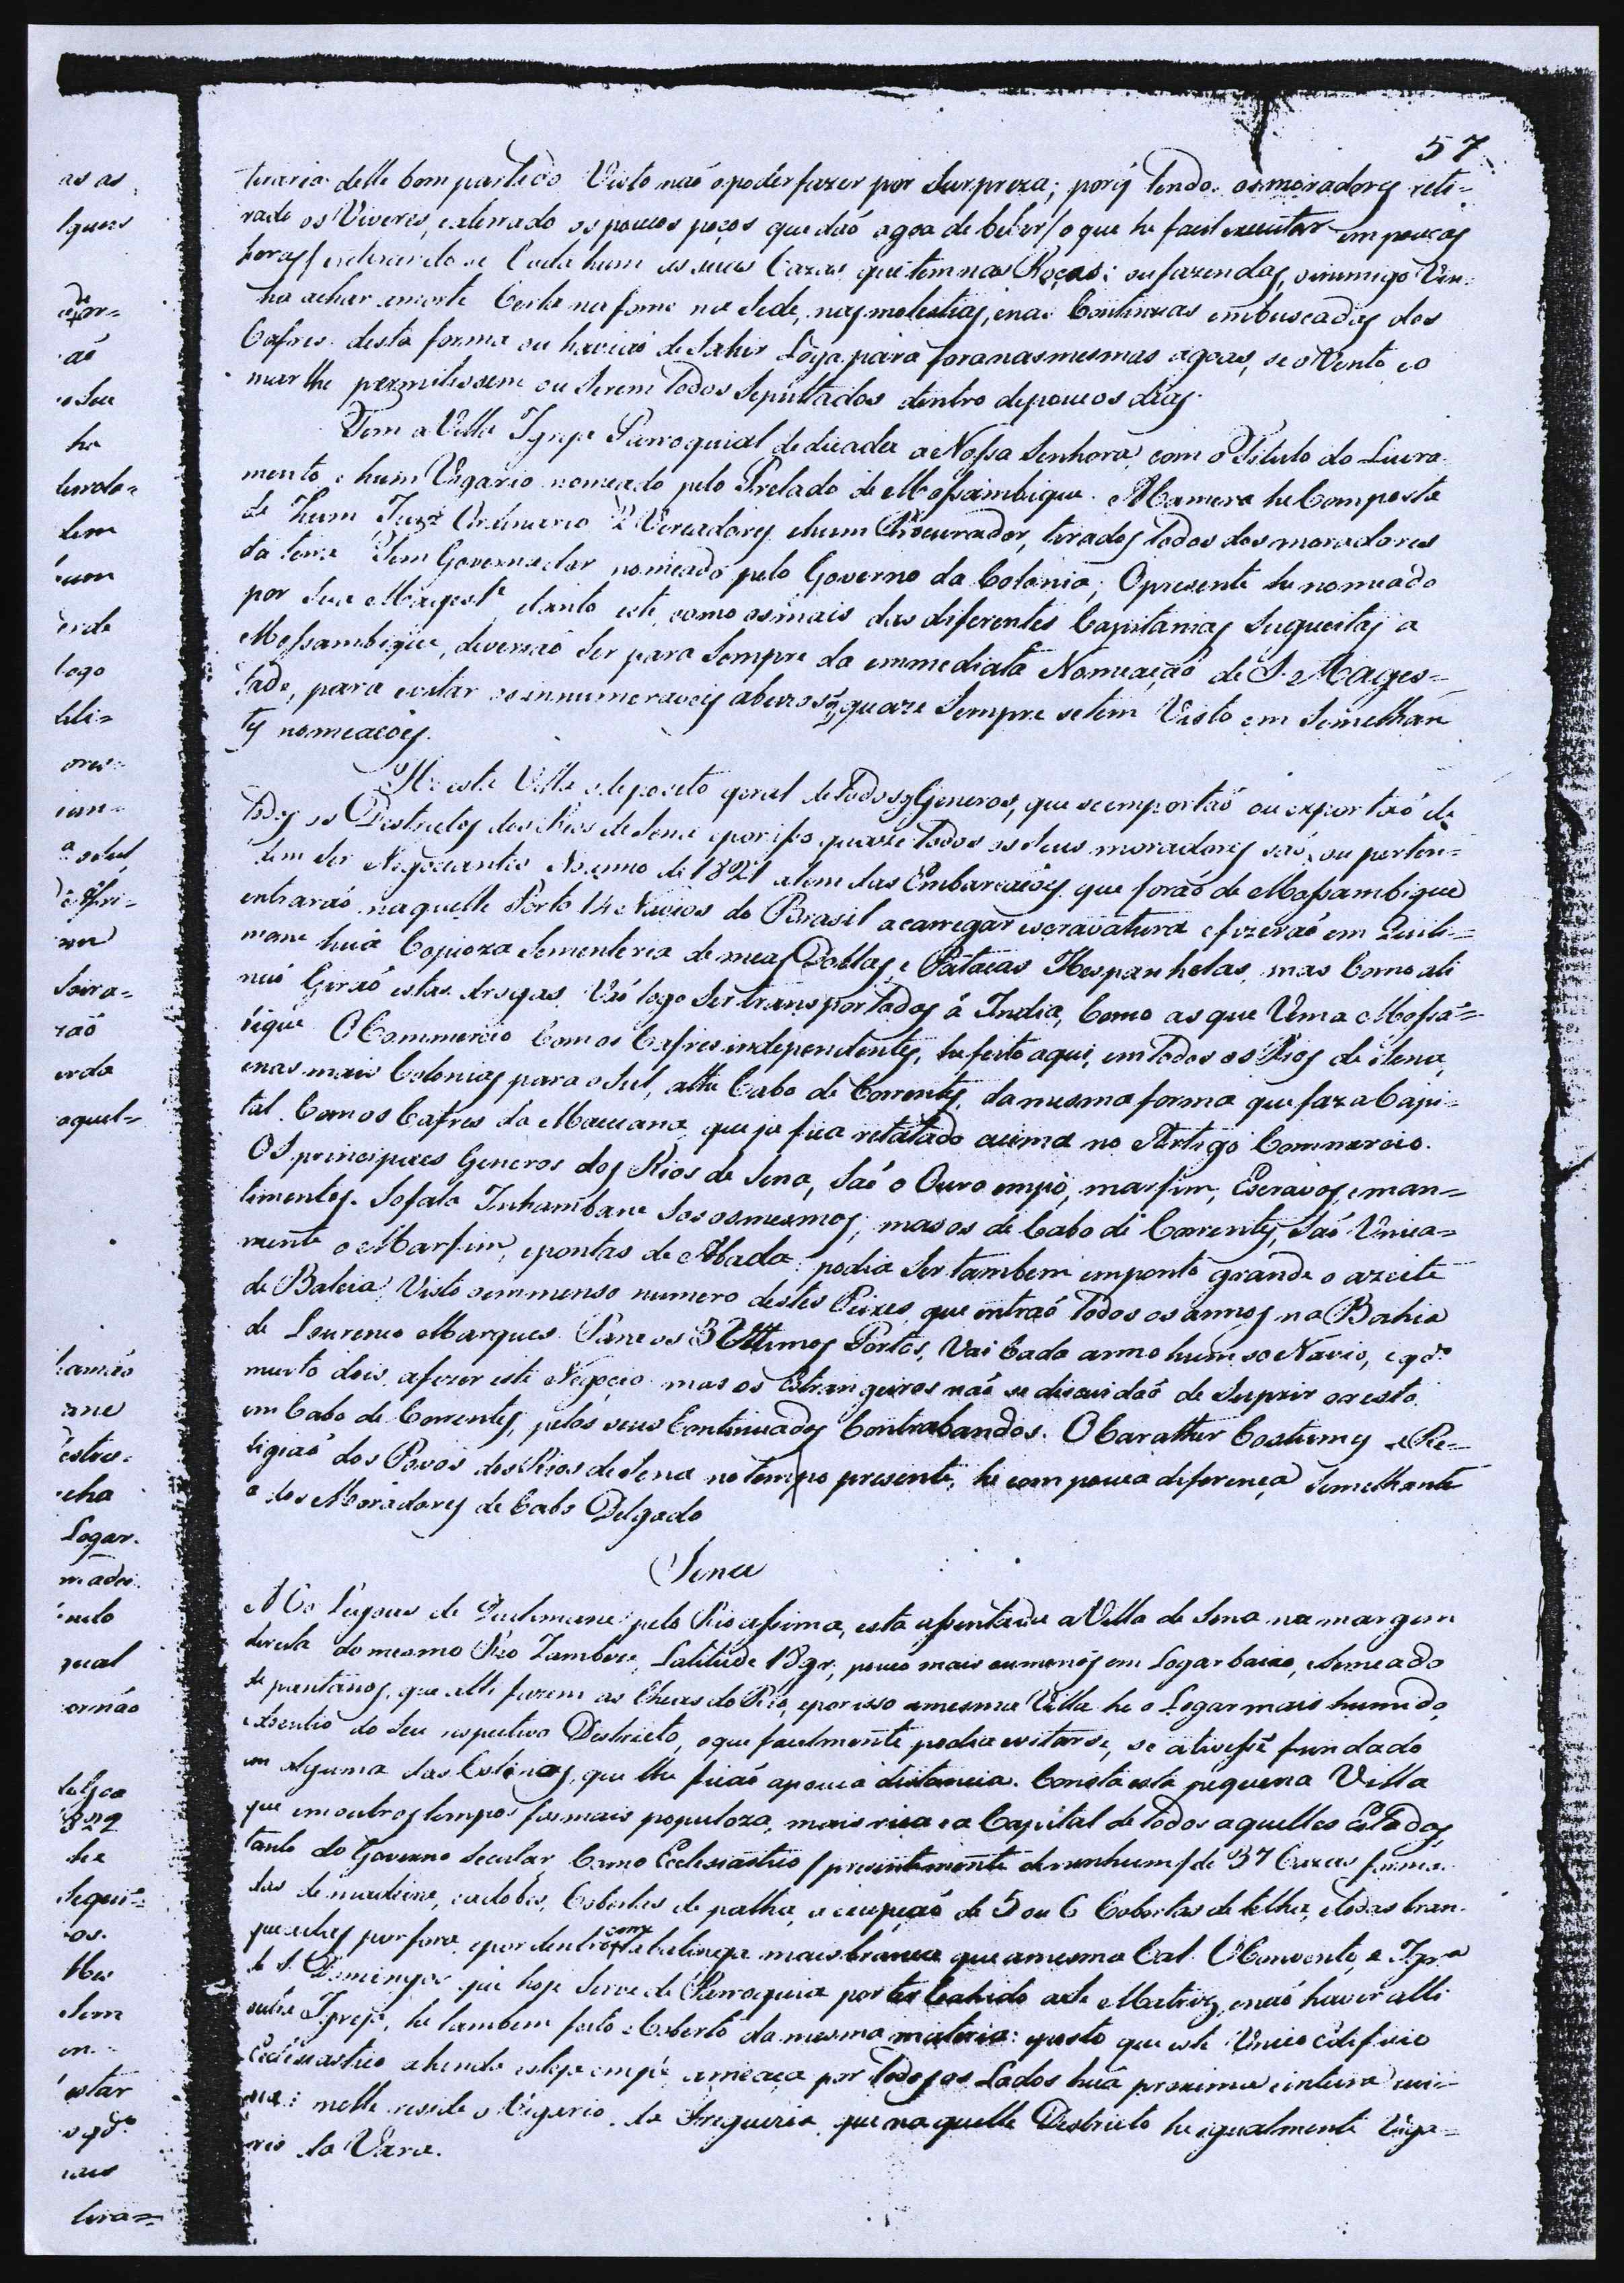 57
tiraria delle bom partido Visto naõ o poder fazer por Surpreza; porq̃ Tendo os moradores reti-
rado os Viveres, eaterrado os poucos poços que daõ agoa de beber/o que he facil executar em poucas
horas/ e retirando se Cada hum as suas Cazas que tem nas Roças: ou fazendas, o inimigo Vi-
ria achar a morte Certa na fome na Sede, nas molestias, e nas Continuas embuscadas dos
Cafres: desta forma ou haviaõ de Sahir Logo para fora nas mesmas agoas, se o Vento eo
mar lhe permitissem ou Serem Todos Sepultados dentro de poucos dias.
Tem a Villa Igreja Parroquial dedicada a Nossa Senhora, com o Titulo do Livra-
mento, e hum Vigario nomeado pelo Prelado de Mossambique. A Camera he Composta
de hum Juiz Ordinario 2 Vereadores ehum Procurador, tirados Todos dos moradores
da terra Tem Governador nomeado pelo Governo da Colonia; O presente he nomeado
por Sua Magest.e etanto este, como os mais das diferentes Capitanias Sugueitas a
Mossambique, deveraõ Ser para Sempre da emmediata Nomeaçaõ de S. Mages-
tade, para evitar os innumeraveis abuzos q̃ quaze Sempre se tem Visto em Semelhan
tes nomeaçoes.
He esta Villa o deposito geral de Todos os Generos, que se emportaõ ou exportaõ de
Todos os Destrictos dos Rios de Sena e por isso quaze Todos os Seus moradores saõ, ou perten-
dem Ser Negociantes No anno de 1821 alem das Embarcaçoes que foraõ de Mossambique
entraraõ naquelle Porto 14 Navios do Brasil a carregar escravatura efizeraõ em Quili-
mane huã Copioza Sementeria de meas Doblas e Patacas Hespanholas, mas Como ali
naõ Giraõ estas drogas Vaõ logo Ser transportadas á India, Como as que Vem a Mossã-
bique O Commercio Com os Cafres independentes, he feito aqui, em Todos os Rios de Sena,
e nas mais Colonias para o Sul, athe Cabo de Correntes, da mesma forma que faz a Capi-
tal Com os Cafres da Macuana que ja fica relatado acima no Artigo Commercio.
Os principaes Generos dos Rios de Sena, Saõ o Ouro empó, marfim, Escravos, e man-
timentos. Sofala Inhambane Saõ os mesmos; mas os de Cabo de Correntes, Saõ Unica-
mente o Marfim, e pontas de Abada podia Ser tambem emponto grande o azeite
de Baleia Visto o emmenso numero destes Peixes que entraõ Todos os annos na Bahia
de Lourenço Marques Para os 3 Ultimos Portos, Vai Cada anno hum so Navio, e qdo.
muito dois afazer este Negocio mas os Estrangeiros naõ se discuidaõ de Suprir oresto
em Cabo de Correntes, pelos seus Continuados Contrabandos. O Carather Costumes e Re-
ligiaõ dos Povos dos Rios de Sena no tempo presente, he com pouca diferença Semelhante
a dos Moradores de Cabo Delgado
Sena
A 60 Legoas de Quilimane pelo Rio assima, esta assentada a Villa de Sena na margem
direita do mesmo Rio Zambeze, Latitude 18 gr, pouco mais oumenos em Logar baixo, e
de pantanos, que alli fazem as Cheias do Rio, e por isso a mesma Villa he o Logar mais humido,
edoentio do Seu respectivo Destricto, o que facilmente podia evitar se, se ativesse fundado
em alguma das Colinas, que lhe ficaõ a pouca distancia. Consta esta pequena Villa
que em outros tempos foi mais populoza, mais rica e a Capital de Todos aquelles Estados,
tanto do Governo Secular Como Ecclesiastico/ presentemente de nenhum/ de 37 Cazas forma-
das de madeira, e adobes, Cobertas de palha, a excepçaõ de 5 ou 6 Cobertas de telha, e todas bran-
queadas por fora, e por dentro com tabatinga mais branca que a mesma Cal. O Convento, e Igra.
de S. Domingos que hoje Serve de Parroquia por ter Cahido a da Matriz, e naõ haver alli
outra Igreja, he tambem feito e Coberto da mesma materia: e posto que este Unico edificio
Ecclesiastico ainda esteja empé ameaça por Todos os Lados huã proxima e inteira rui-
na: nelle reside o Vigario da Freguezia que naquelle Destricto he igualmente Viga-
rio da Vara.
as as
lguas
aõ
o Seu
ha
tem
logo
Sul
raõ
aquel-
Logar.
qual
822
he
Sequi-
os.
Sem
estar
qdo.